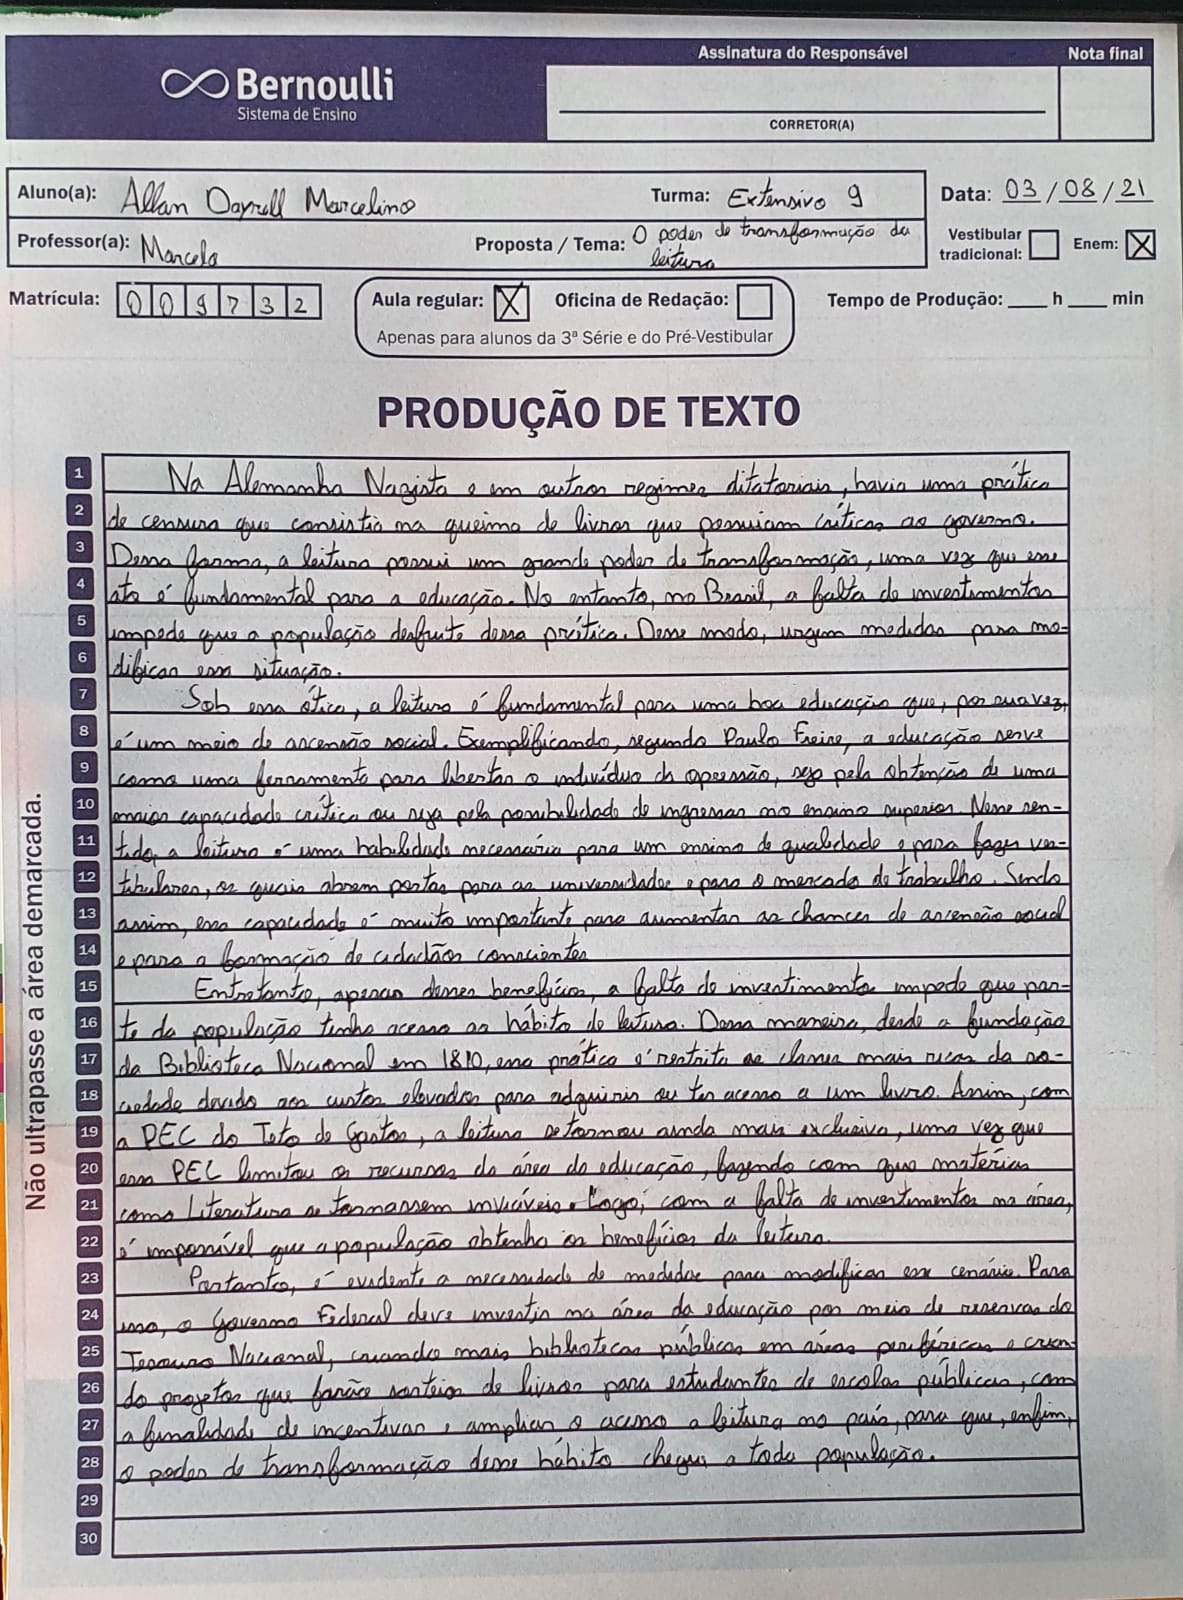 Bernoulli
Sistema de Ensino
Assinatura do Responsável
CORRETOR(A)
Nota final
Aluno(a): Allan Dayrell Marcelino
Turma: Extensivo 9
Data: 03/08/21
Professor(a): Marcelo
Proposta / Tema: O poder de transformação da
leitura
Vestibular tradicional:
Enem: X
Matrícula: 009732
Aula regular: X Oficina de Redação:
Apenas para alunos da 3ª Série e do Pré-Vestibular
Tempo de Produção: ____ h ____ min
PRODUÇÃO DE TEXTO
Não ultrapasse a área demarcada.
1 Na Alemanha Nazista e em outros regimes ditatoriais, havia uma prática
2 de censura que consistia na queima de livros que possuiam críticas ao governo.
3 Dessa forma, a leitura possui um grande poder de transformação, uma vez que esse
4 ato é fundamental para a educação. No entanto, no Brasil, a falta de investimentos
5 impede que a população desfrute dessa prática. Desse modo, urgem medidas para mo-
6 dificar essa situação.
7 Sob essa ótica, a leitura é fundamental para uma boa educação que, por sua vez,
8 é um meio de ascensão social. Exemplificando, segundo Paulo Freire, a educação serve
9 como uma ferramenta para libertar o indivíduo da opressão, seja pela obtenção de uma
10 maior capacidade crítica ou seja pela possibilidade de ingressar no ensino superior. Nesse sen-
11 tido, a leitura é uma habilidade necessária para um ensino de qualidade e para fazer ves-
12 tibulares, os quais abrem portas para as universidades e para o mercado de trabalho. Sendo
13 assim, essa capacidade é muito importante para aumentar as chances de ascensão social
14 e para a formação de cidadãos conscientes
15 Entretanto, apesar desses benefícios, a falta de investimento impede que par-
16 te da população tenha acesso ao hábito de leitura. Dessa maneira, desde a fundação
17 da Biblioteca Nacional em 1810, essa prática é restrita as classes mais ricas da so-
18 ciedade devido aos custos elevados para adquirir ou ter acesso a um livro. Assim, com
19 a PEC do Teto de Gastos, a leitura se tornou ainda mais exclusiva, uma vez que
20 essa PEC limitou os recursos da área da educação, fazendo com que matérias
21 como Literatura se tornassem inviáveis. Logo, com a falta de investimentos na área,
22 é impossível que a população obtenha os benefícios da leitura.
23 Portanto, é evidente a necessidade de medidas para modificar esse cenário. Para
24 isso, o Governo Federal deve investir na área da educação por meio de reservas do
25 Tesouro Nacional, criando mais bibliotecas públicas em áreas periféricas e crian-
26 do projetos que farão sorteios de livros para estudantes de escolas públicas, com
27 a finalidade de incentivar e ampliar o acesso a leitura no país, para que, enfim,
28 o poder de transformação desse hábito chegue a toda população.
29
30